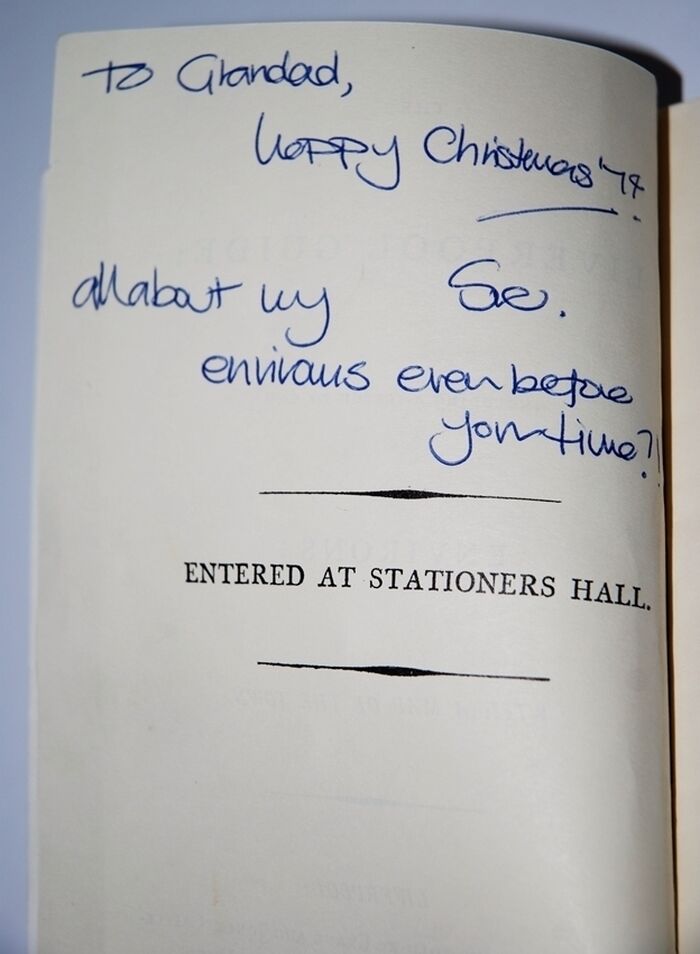 To Grandad,
Happy Christmas '74
Sue.
all about my
environs even before
your time?!
ENTERED AT STATIONERS HALL.